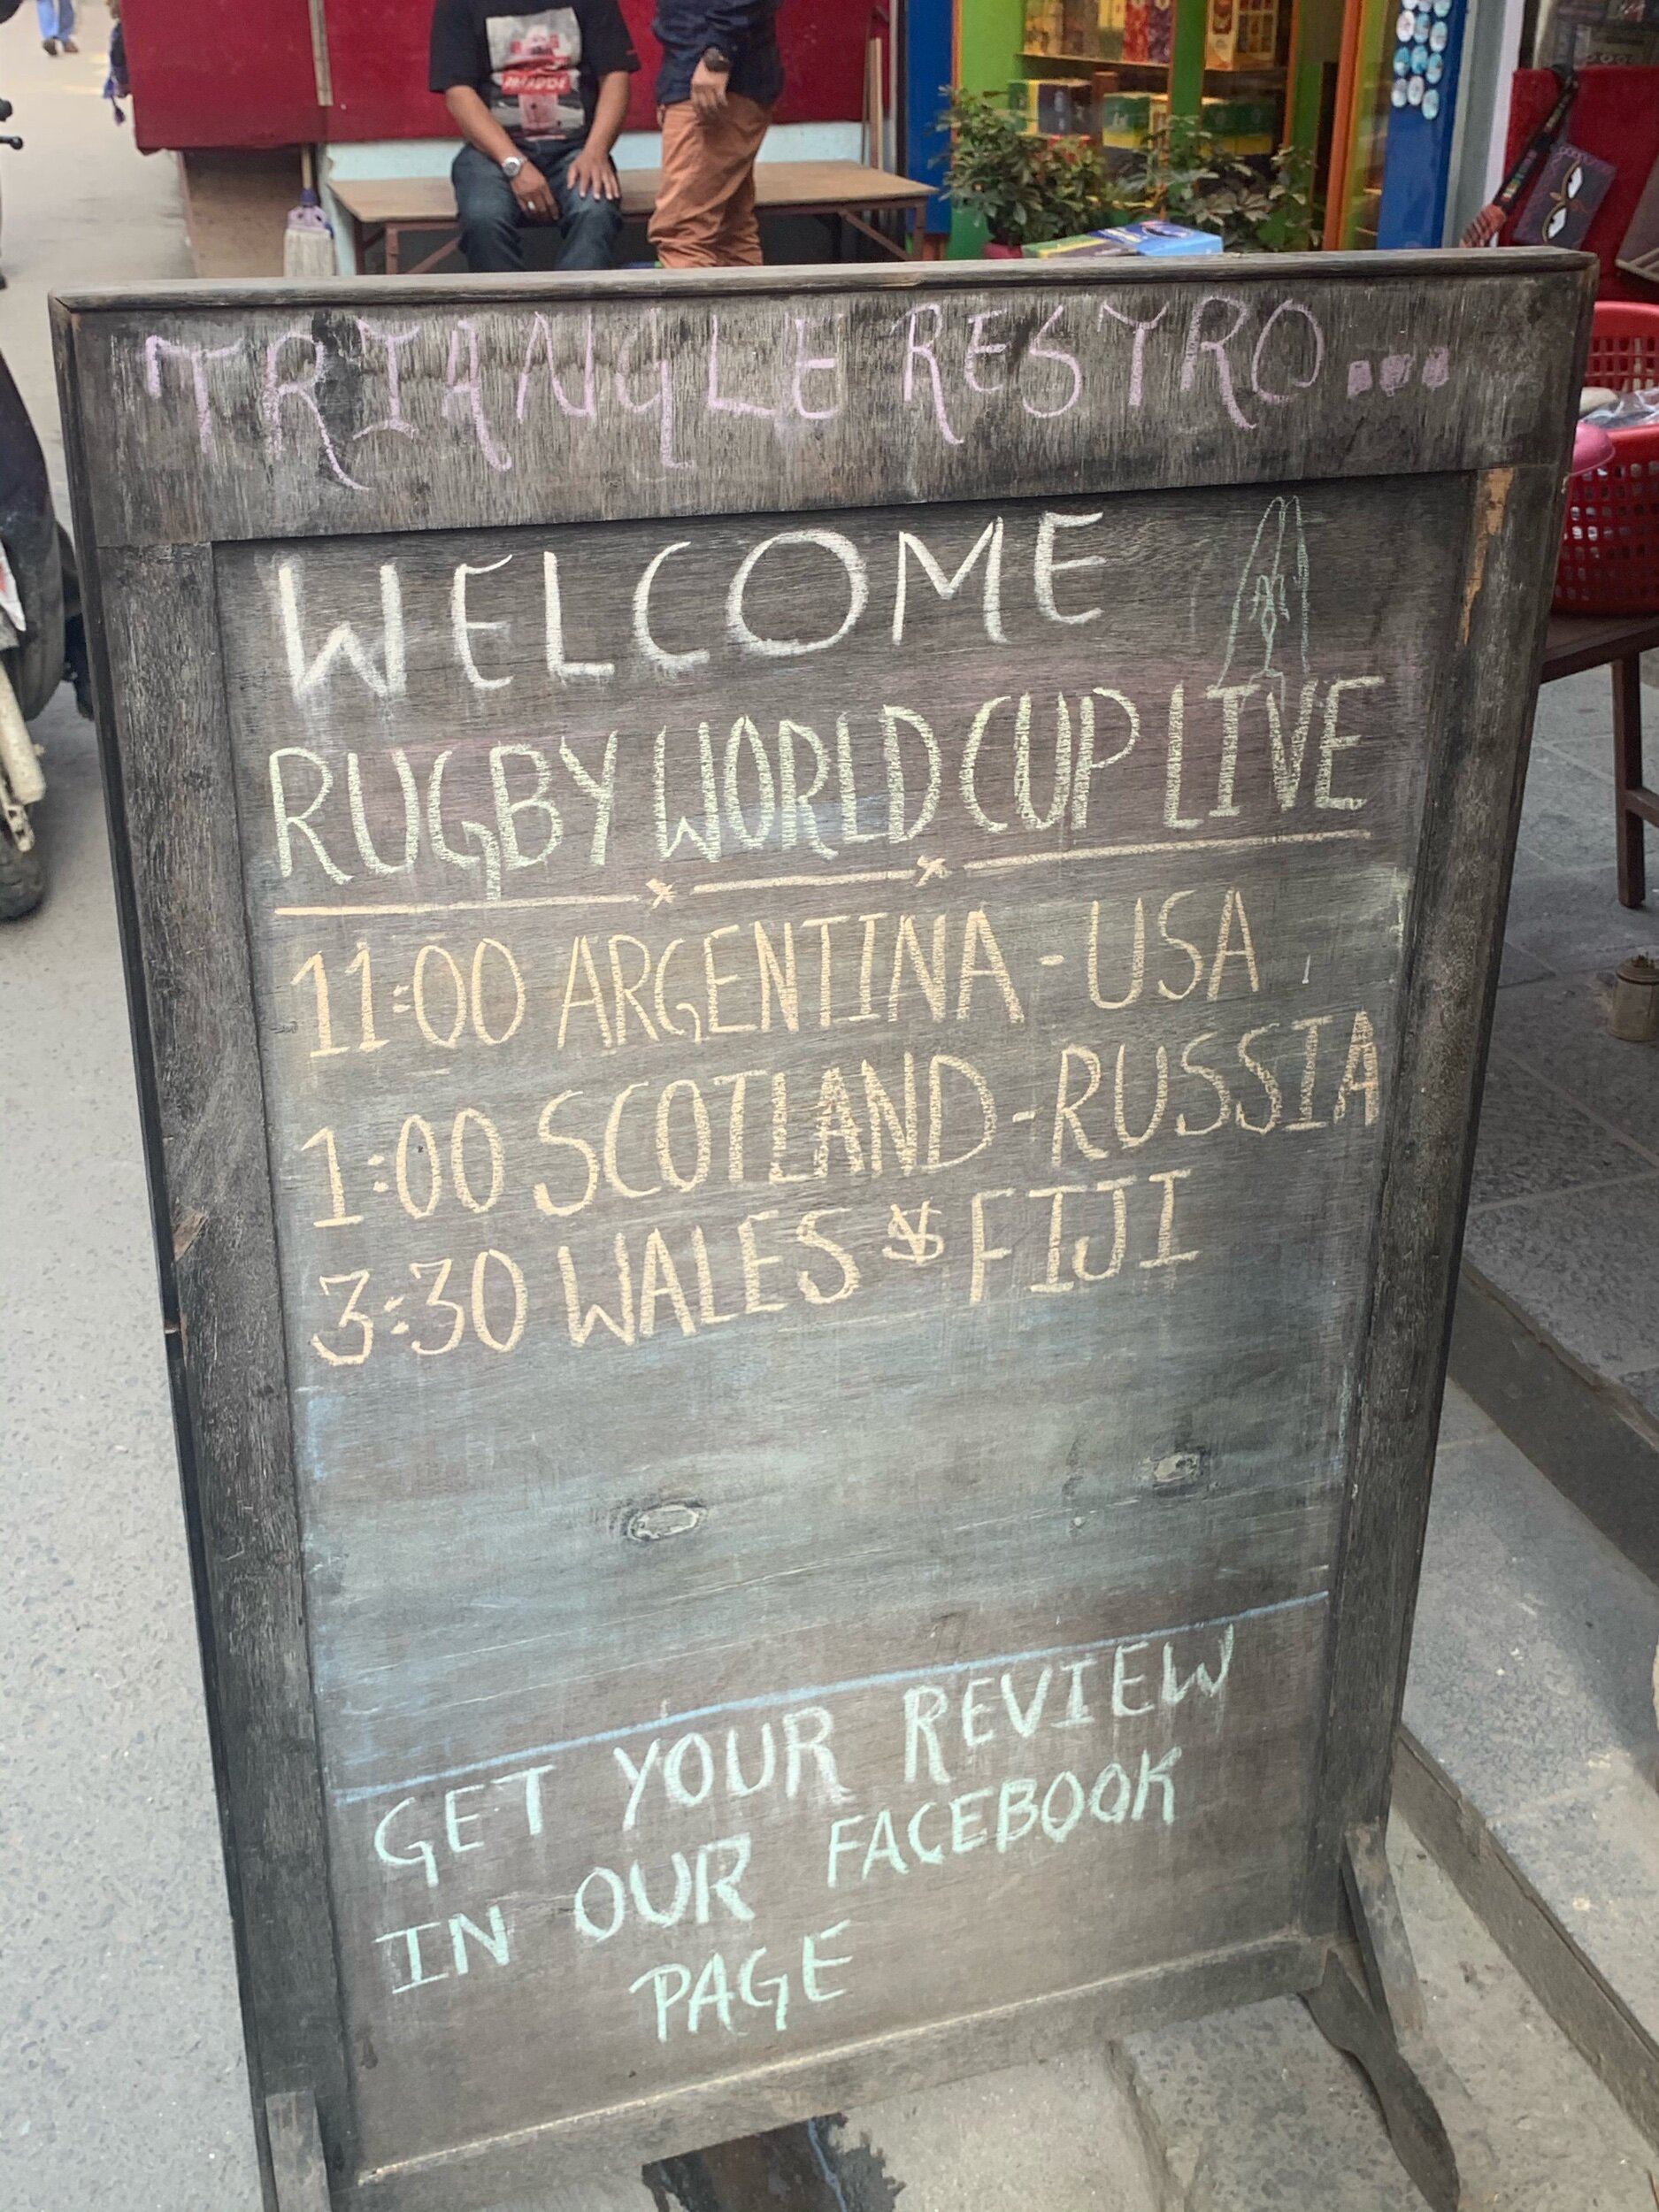 TRIANGLE RESTRO...
WELCOME
RUGBY WORLD CUP LIVE
11:00 ARGENTINA - USA
1:00 SCOTLAND - RUSSIA
3:30 WALES VS FIJI
GET YOUR REVIEW
IN OUR FACEBOOK
PAGE